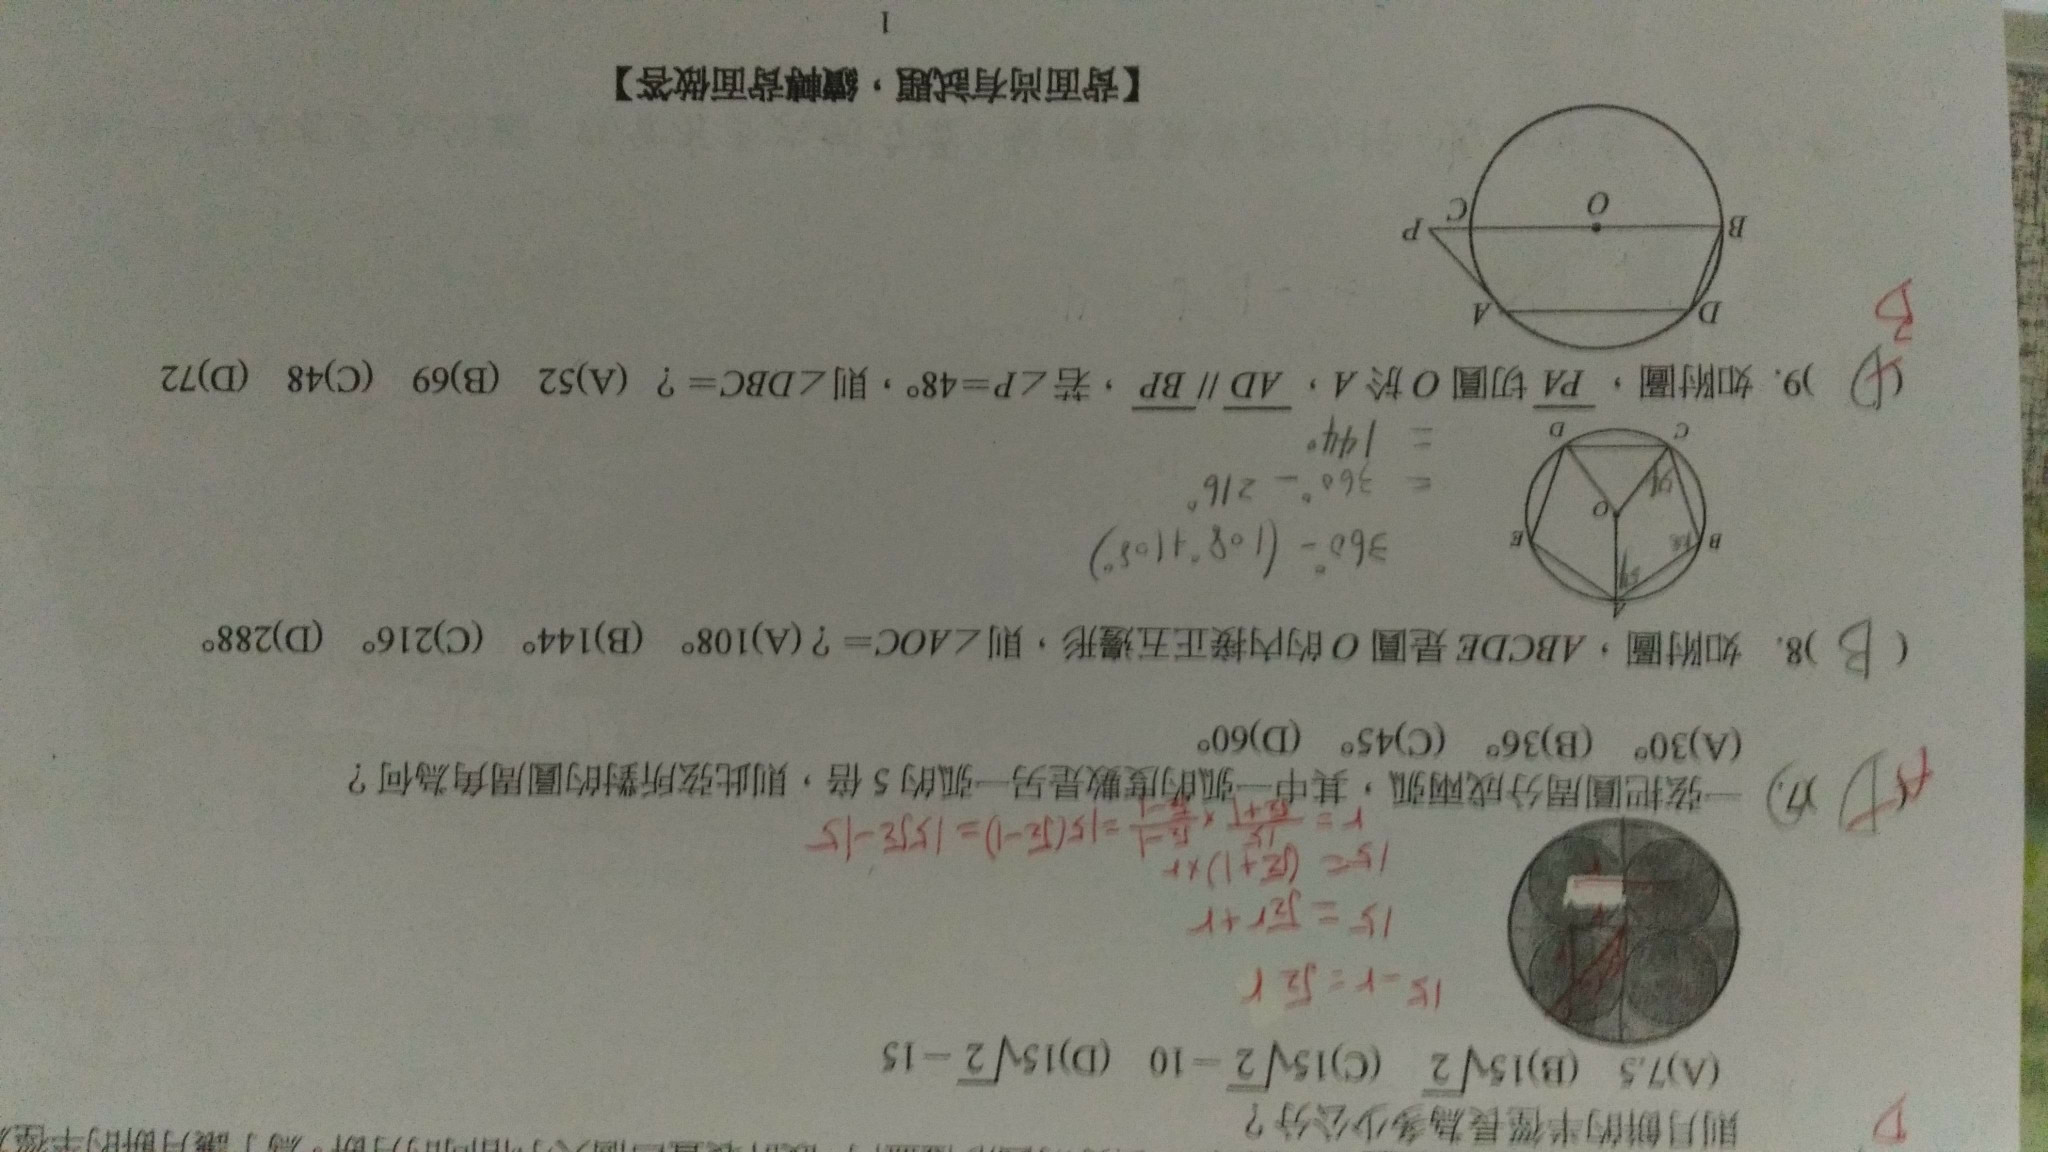 則月餅的半徑長為多少公分？
(A)7.5 (B)15√2 (C)15√2－10 (D)15√2－15
D
15－r＝√2 r
15＝√2r＋r
15＝(√2＋1)×r
r＝15/(√2＋1)×(√2－1)/(√2－1)＝15(√2－1)＝15√2－15
( )7. 一弦把圓周分成兩弧，其中一弧的度數是另一弧的 5 倍，則此弦所對的圓周角為何？
(A)30° (B)36° (C)45° (D)60°
( B )8. 如附圖，ABCDE 是圓 O 的內接正五邊形，則∠AOC＝？(A)108° (B)144° (C)216° (D)288°
A
B
E
O
C
D
360°－(108°＋108°)
＝360°－216°
＝144°
( )9. 如附圖，PA 切圓 O 於 A，AD // BP，若∠P＝48°，則∠DBC＝？ (A)52 (B)69 (C)48 (D)72
B
D
A
B
O
C
P
【背面尚有試題，續轉背面做答】
1